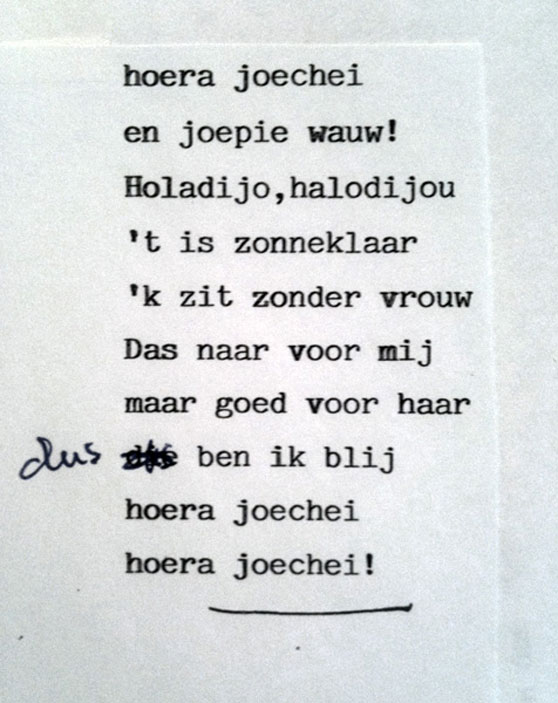 hoera joechei
en joepie wauw!
Holadijo,halodijou
't is zonneklaar
'k zit zonder vrouw
Das naar voor mij
maar goed voor haar
dus ben ik blij
hoera joechei
hoera joechei!